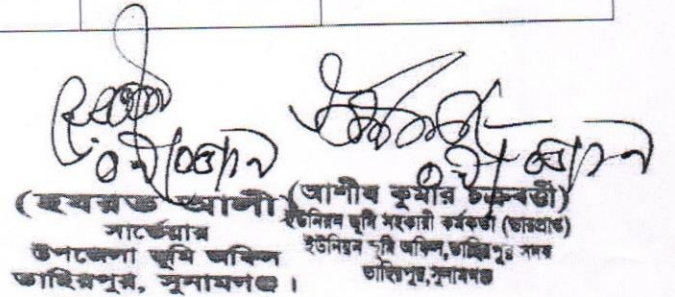 (হযরত আলী)
সার্ভেয়ার
উপজেলা ভূমি অফিস
তাহিরপুর, সুনামগঞ্জ।
(আশীষ কুমার চক্রবর্ত্তী)
ইউনিয়ন ভূমি সহকারী কর্মকর্তা (ভারপ্রাপ্ত)
ইউনিয়ন ভূমি অফিস,তাহিরপুর সদর
তাহিরপুর,সুনামগঞ্জ